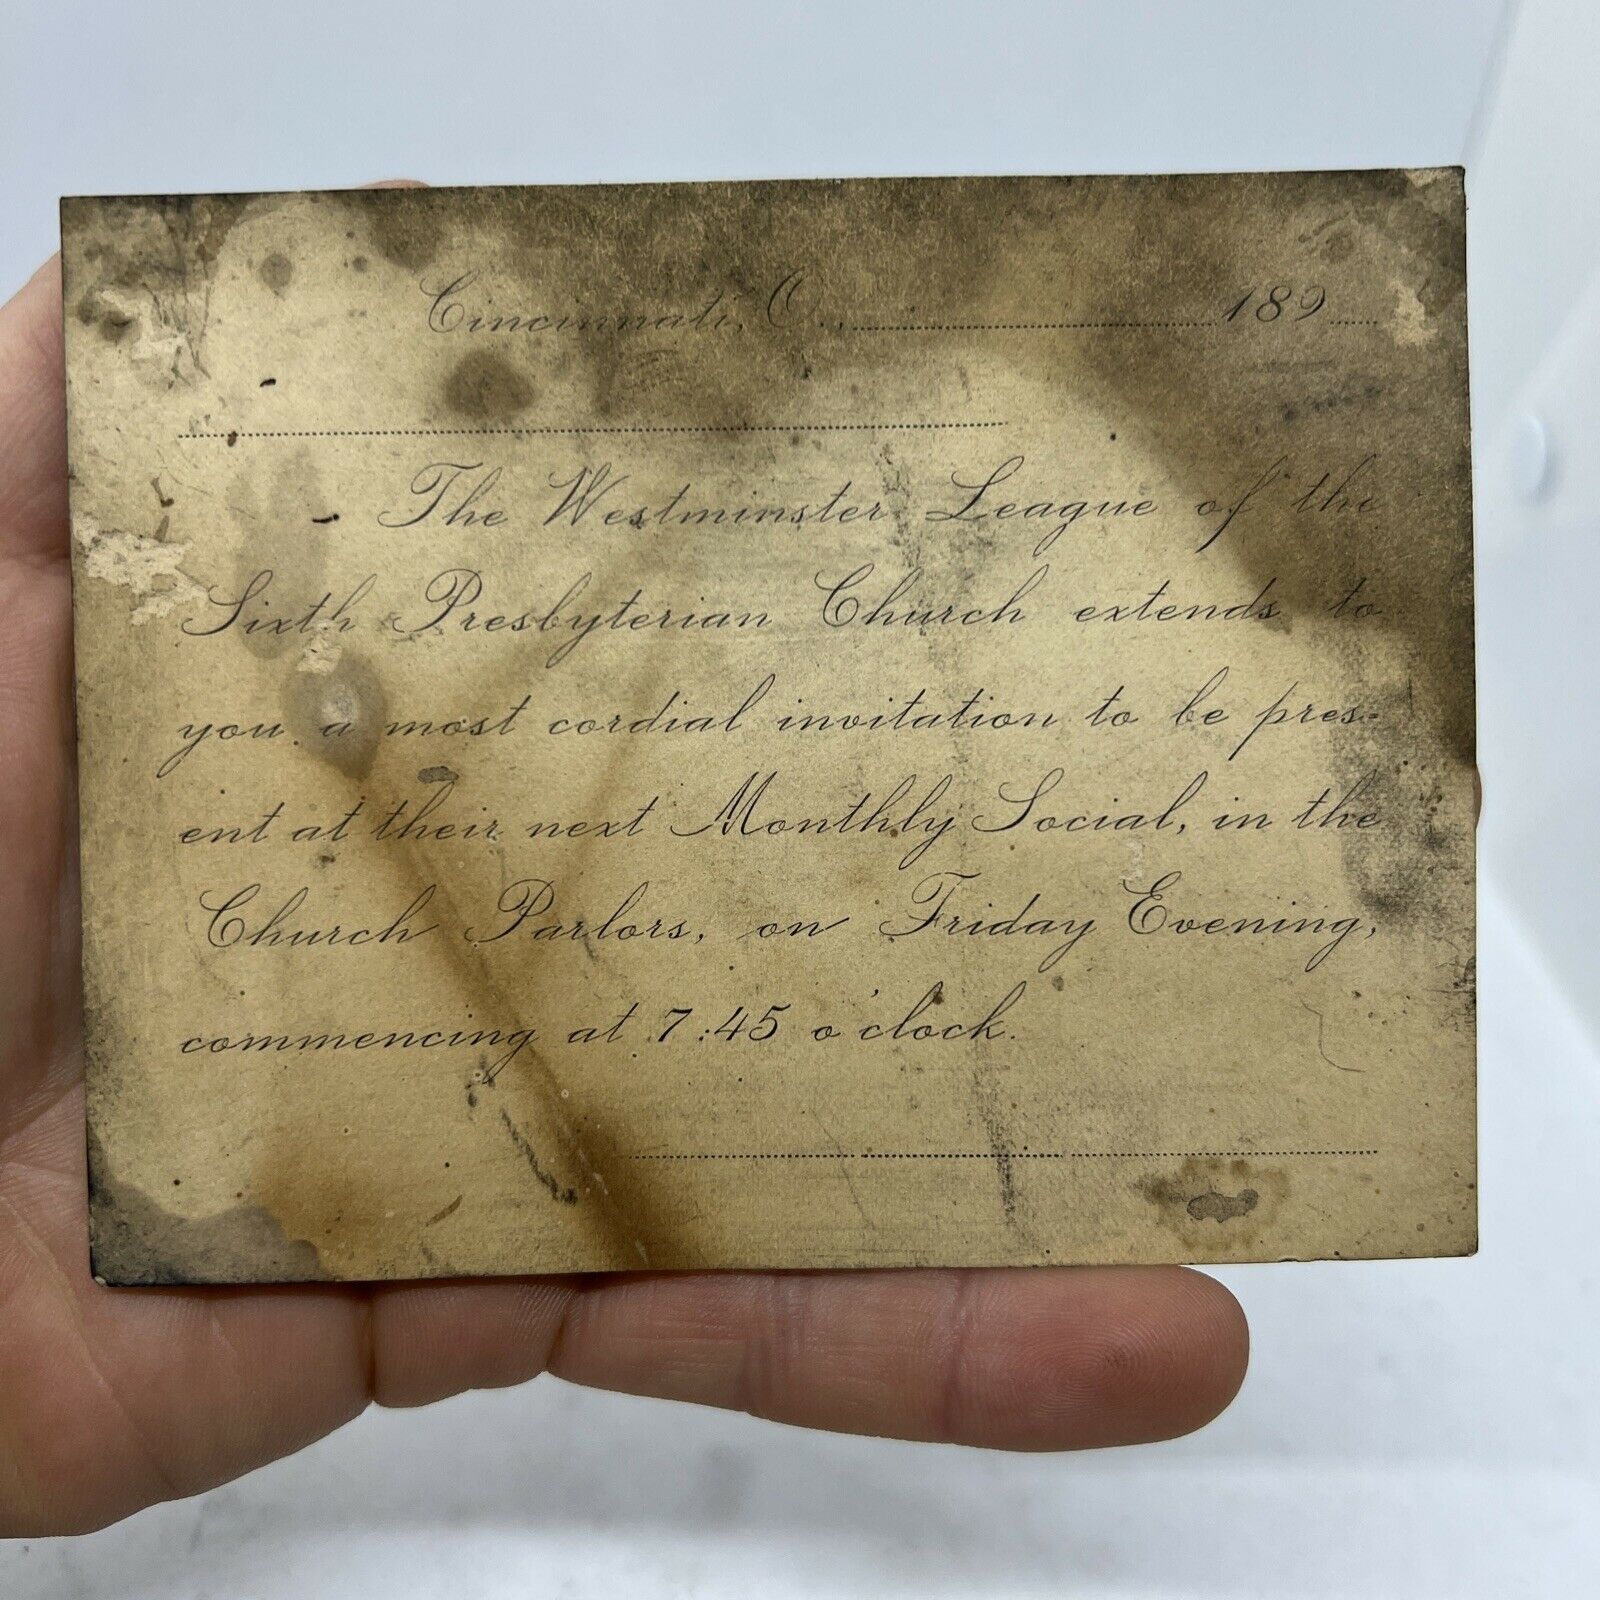 Cincinnati, O., 189
The Westminster League of the
Sixth Presbyterian Church extends to
you a most cordial invitation to be pres-
ent at their next Monthly Social, in the
Church Parlors, on Friday Evening,
commencing at 7:45 o'clock.